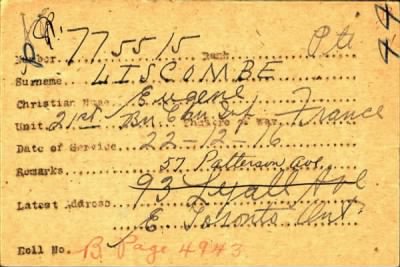 Number 775515 Rank Pte
Surname LISCOMBE
Christian Name Eugene
Unit 21st Bn C.E.F. Theatre of War France
Date of Service 22-12-16
Remarks 57 Patterson Ave.
93 Lyall Ave
Latest Address
E. Toronto Ont.
Roll No. B. Page 4943
44